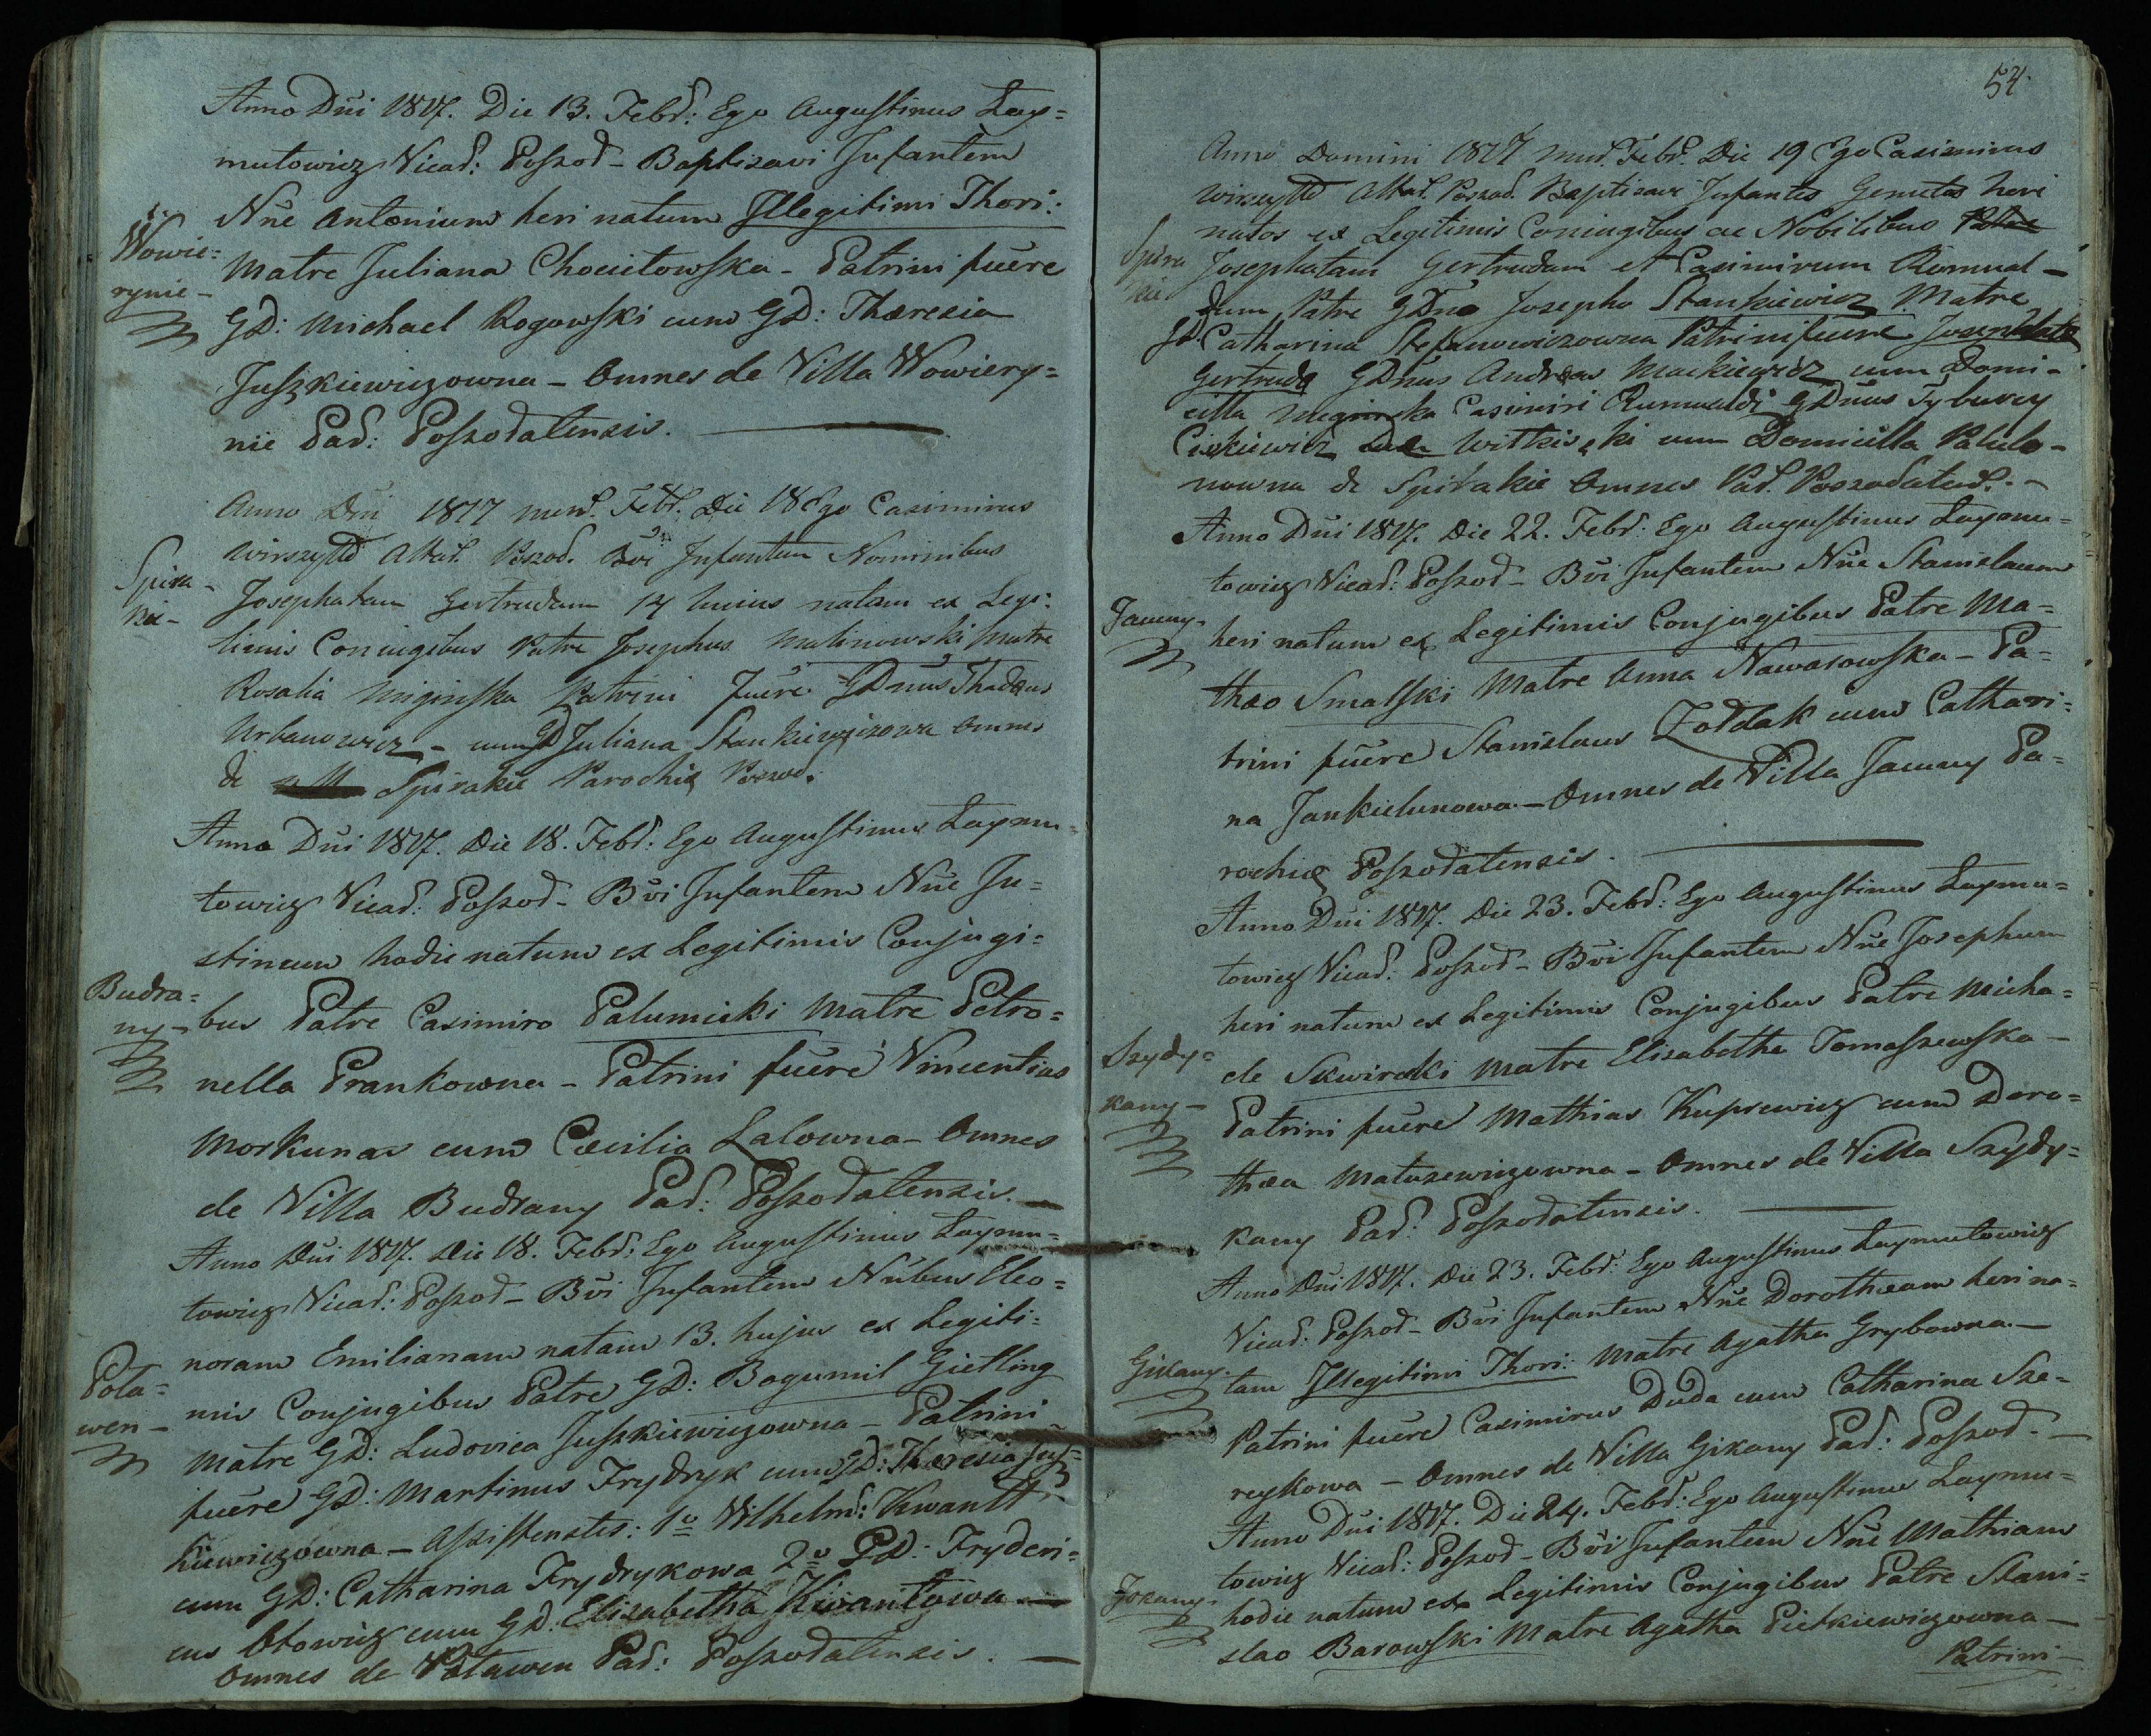 Anno Dni 1817. Die 13. Febr: Ego Augustinus Lay=
mutowicz Vicar: Poszod- Baptisavi Infantem
Nne Antonium heri natum Illegitimi Thori:
Wowie=
rynie-
Matre Juliana Chocutowska - Patrini fuere
GD: Michael Rogowski cum GD: Thæresia
Juszkiewiczowna - Omnes de Villa Wowiery=
nie Par: Poszodatensis.
Anno Dni 1817 mens. Febr. Die 18 Ego Casimirus
Wirszyłło Altar. Poszod. Bvi Infantem Nominibus
Spira-
kie-
Josephatam Gertrudam 14 huius natam ex Legi-
timis Coniugibus Patre Josephus Malinowski Matre
Rosalia Miginska Patrini fuere GDnus Thadæus
Urbanowicz - cum GD Juliana Stankiewiczowa Omnes
de Spirakie Parochiæ Poszod.
Anno Dni 1817. Die 18. Febr: Ego Augustinus Laymu=
towicz Vicar: Poszod- Bvi Infantem Nne Ju=
stinum hodie natum ex Legitimis Conjugi=
Budra=
ny-
bus Patre Casimiro Palumicki Matre Petro=
nella Prankowna - Patrini fuere Vincentius
Morkunas cum Cæcilia Lalowna - Omnes
de Villa Budrany Par: Poszodatensis.-
Anno Dni 1817. Die 18. Febr: Ego Augustinus Laymu=
towicz Vicar: Poszod- Bvi Infantem Nnibus Eleo=
noram Emilianam natam 13. hujus ex Legiti=
Pota=
wen-
mis Conjugibus Patre GD: Bogumil Gietling
Matre GD: Ludovica Juszkiewiczowna - Patrini
fuere GD: Martinus Frydryk cum GD: Thæresia Jusz=
kiewiczowna - Assistentes: 1o Wilhelm: Kwantt
cum GD: Catharina Frydrykowa 2o GD: Fryderi=
cus Otowicz cum GD. Elisabetha Kwantowa -
Omnes de Potawen Par: Poszodatensis. -
54.
Anno Domini 1817 mens. Febr. Die 19 Ego Casimirus
Wirszyłło Altar. Poszod. Baptisavi Infantes Gemelos heri
natos ex Legitimis Coniugibus ac Nobilibus Patre
Spira
kie
Josephatam Gertrudam et Casimirum Romual-
dum Patre GDno Josepho Stankiewicz Matre
GD. Catharina Stefanowiczowna Patrini fuere Josephatæ
Gertrudæ GDnus Andreas Mackiewicz cum Domi-
cilla Miginska Casimiri Rumualdi GDnus Tyburcy
Ciskiewicz Witkiski cum Domicilla Palulo-
nowna de Spirakie Omnes Par. Poszodatens. -
Anno Dni 1817. Die 22. Febr: Ego Augustinus Laymu=
towicz Vicar: Poszod- Bvi Infantem Nne Stanislaum
Jawny-
heri natum ex Legitimis Conjugibus Patre Ma=
thæo Smalski Matre Anna Nawarowska - Pa=
trini fuere Stanislaus Zołdak cum Cathari:
na Jankielunowa - Omnes de Villa Jawny Pa=
rochiæ Poszodatensis.
Anno Dni 1817. Die 23. Febr: Ego Augustinus Laymu=
towicz Vicar: Poszod- Bvi Infantem Nne Josephum
heri natum ex Legitimis Conjugibus Patre Micha=
Szydy=
kany-
ele Skwirski Matre Elisabetha Tomaszewska -
Patrini fuere Mathias Kuprewicz cum Doro=
thæa Matusewiczowna - Omnes de Villa Szydy=
kany Par: Poszodatensis.
Anno Dni 1817. Die 23. Febr: Ego Augustinus Laymutowicz
Vicar: Poszod- Bvi Infantem Nne Dorotheam heri na=
Gikany-
tam Illegitimi Thori: Matre Agatha Grybowna. -
Patrini fuere Casimirus Duda cum Catharina Sze=
reykowa - Omnes de Villa Gikany Par: Poszod. -
Anno Dni 1817. Die 24. Febr: Ego Augustinus Laymu=
towicz Vicar: Poszod- Bvi Infantem Nne Mathiam
Jozany-
hodie natum ex Legitimis Conjugibus Patre Stani=
slao Barowski Matre Agatha Pietkiewiczowna -
Patrini -